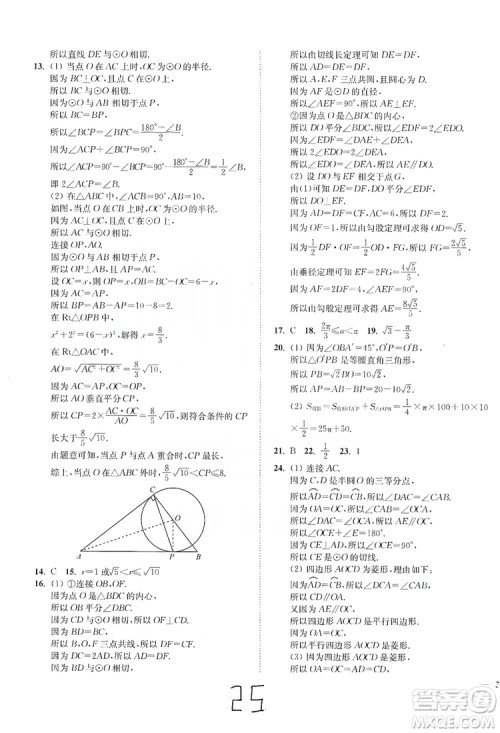 所以直线 DE 与⊙O 相切.
13. (1) 当点 O 在 AC 上时,OC 为⊙O 的半径.
因为 BC⊥OC,且点 C 在⊙O 上,
所以 BC 与⊙O 相切.
因为⊙O 与 AB 边相切于点 P,
所以 BC=BP,
所以∠BCP=∠BPC=(180°-∠B)/2.
因为∠ACP+∠BCP=90°,
所以∠ACP=90°-∠BCP=90°-(180°-∠B)/2=1/2∠B,
即 2∠ACP=∠B.
(2) 在△ABC 中,∠ACB=90°,AB=10.
如图,当点 O 在 CB 上时,OC 为⊙O 的半径.
因为 AC⊥OC,且点 C 在⊙O 上,
所以 AC 与⊙O 相切.
连接 OP、AO.
因为⊙O 与 AB 边相切于点 P,
所以 OP⊥AB,且 AC=AP=8.
设 OC=x,则 OP=x,OB=6-x.
所以 BP=AB-AP=10-8=2.
在 Rt△OPB 中,
x²+2²=(6-x)²,解得 x=8/3.
在 Rt△OAC 中,
AO=√(AC²+OC²)=8/3√10.
所以 AO 垂直平分 CP,
所以 CP=2×(AC·OC)/AO=8/5√10,则符合条件的 CP
长大于8/5√10.
由题意可知,当点 P 与点 A 重合时,CP 最长,
综上,当点 O 在△ABC 外时,8/5√10<CP≤8.
C
O
A
P
B
14. C 15. r=1 或√5<r≤√10
16. (1) ①连接 OB、OF.
因为点 O 是△ABC 的内心,
所以 BD 平分∠ABC.
因为 CD 与⊙O 相切,
所以 OF⊥CD.
因为 BD=BC,
所以 B、O、F 三点共线,
所以 CD=2DF.
因为 DC=2AD,所以 AD=DF.
因为 BD、BA 与⊙O 相切,
所以由切线长定理可知 AD=DE,
所以 AD=DE=DF.
所以 A、E、F 三点共圆,且圆心为 D,
所以 AF 是⊙D 的直径,
所以∠AEF=90°,所以 AE⊥EF.
②因为点 O 是△BDC 的内心,
所以 DO 平分∠BDC,所以 DO⊥EF,
所以∠DEF+∠EDO=90°.
因为∠DEF+∠DEA=90°,
所以∠EDO=∠DEA,
所以 AE∥DO.
(2) 设 DO 与 EF 相交于点 G.
由(1)可知 DE=DF,
所以 DO⊥EF.
因为 AD=2,所以 DF=2.
因为 OF=1,所以由勾股定理可求得 OD=√5.
因为1/2DF·OF=1/2OD·FG,所以 FG=2√5/5.
由垂径定理可知 EF=4√5/5.
因为 AF=2DF=4,
所以由勾股定理可求得 AE=8√5/5.
17. C 18. 2π/3≤a<π 19. √3-π/3
20. (1) 因为∠OBA′=45°,O′P=O′B,
所以△O′PB 是等腰直角三角形,
所以 PB=√2BO,
所以 AP=AB-BP=20-10√2.
21. B 22. 2π 23. 1
24. (1) 连接 AC.
因为 C、D 是半圆 O 的三等分点,
所以AD=CD=BC,所以∠DAC=∠CAB.
因为 OA=OC,所以∠CAB=∠OCA,
所以∠DAC=∠OCA,所以 AE∥OC,
所以∠OCE+∠E=180°.
因为 CE⊥AD,所以∠OCE=90°,
所以 OC⊥CE,
所以 CE 为⊙O 的切线.
(2) 四边形 AOCD 为菱形,理由如下:
因为AD=CD,所以∠DCA=∠CAB,
所以 CD∥OA.
又因为 AE∥OC,
所以四边形 AOCD 是平行四边形.
因为 OA=OC,
所以平行四边形 AOCD 是菱形.
(3) 因为四边形 AOCD 是菱形,
所以 OA=AD=CD=2.
25